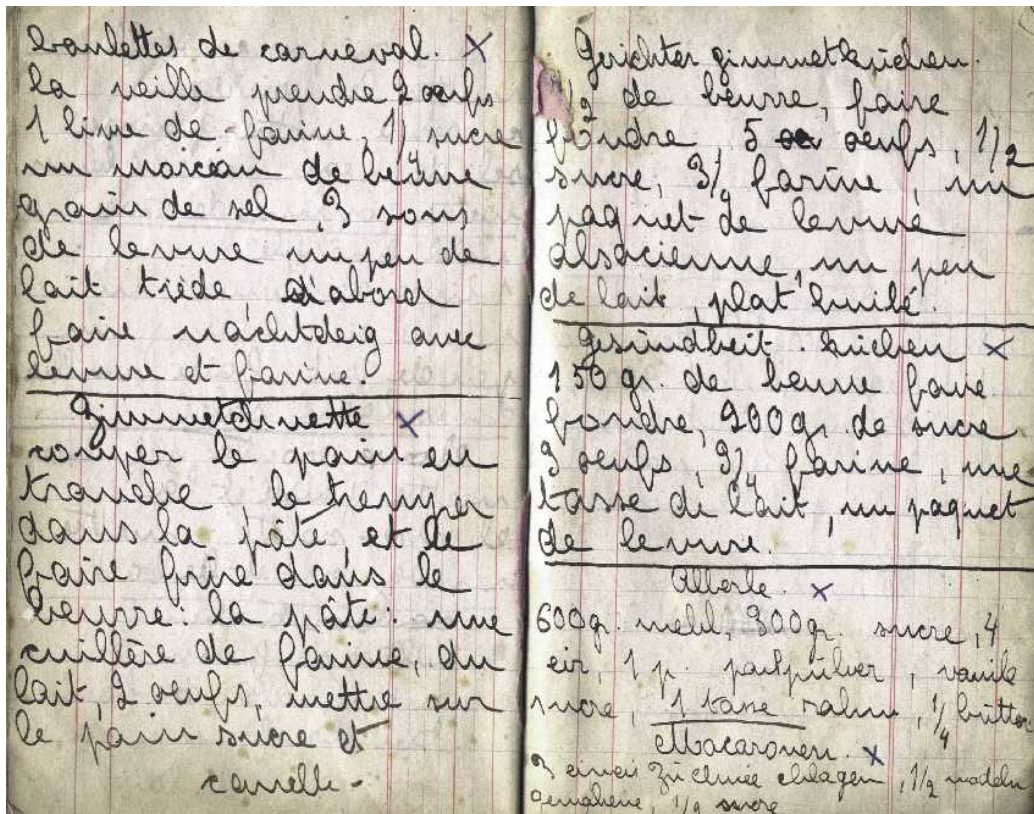 boulettes de carneval. X
la veille prendre 2 oeufs
1 livre de farine, 1/4 sucre
un morceau de beurre
grain de sel 3 sous
de levure un peu de
lait tiède, d'abord
faire nachtdeig avec
levure et farine.
Zimmetchnette X
couper le pain en
tranche, le tremper
dans la pâte, et le
faire frire dans le
beurre: la pâte: une
cuillère de farine, du
lait, 2 oeufs, mettre sur
le pain sucre et
cannelle -
Gerichter zimmetküchen.
1/2 de beurre, faire
fondre, 5 oeufs, 1/2
sucre, 3/4 farine, un
paquet de levure
alsacienne, un peu
de lait, plat huilé.
Gesündheit - küchen X
150 gr. de beurre faire
fondre, 200 gr. de sucre
3 oeufs, 3/4 farine, une
tasse de lait, un paquet
de levure.
Alberle. X
600 gr. mehl, 300 gr. sucre, 4
eir, 1 p. packpülver, vanile
sucre, 1 tasse rahm, 1/4 bütter
Macaronen. X
3 eiweis zü chnée chlagen, 1/2 madeln
gemahlene, 1/2 sucre